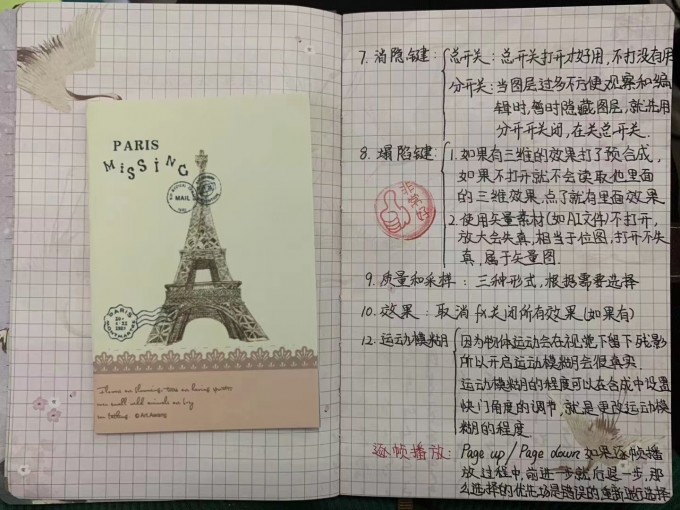 PARIS
MISSING
MAIL
PARIS
MONTMARTRE
© Art.Asseng
7. 消隐键: 总开关: 总开关打开才好用, 不打没有用
分开关: 当图层过多不便观察和编
辑时, 暂时隐藏图层, 就选用
分开开关闭, 在关总开关.
8. 塌陷键: 1. 如果有三维的效果打了预合成,
如果不打开就不会读取他里面
的三维效果, 点了就有里面效果
2. 使用矢量素材(如AI文件)不打开,
放大会失真, 相当于位图, 打开不失
真, 属于矢量图.
非常好
9. 质量和采样: 三种形式, 根据需要选择
10. 效果: 取消fx关闭所有效果(如果有)
12. 运动模糊 因为物体运动会在视觉下留下残影
所以开启运动模糊会很真实.
运动模糊的程度可以在合成中设置
快门角度的调节, 就是更改运动模
糊的程度.
逐帧播放: Page up / Page down 如果逐帧播
放过程中, 前进一步就后退一步, 那
么选择的优先场是错误的重新进行选择